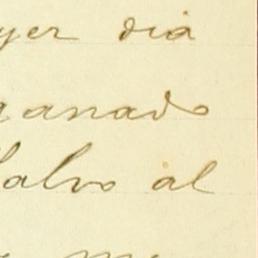 yer dia
ganado
Salvo al